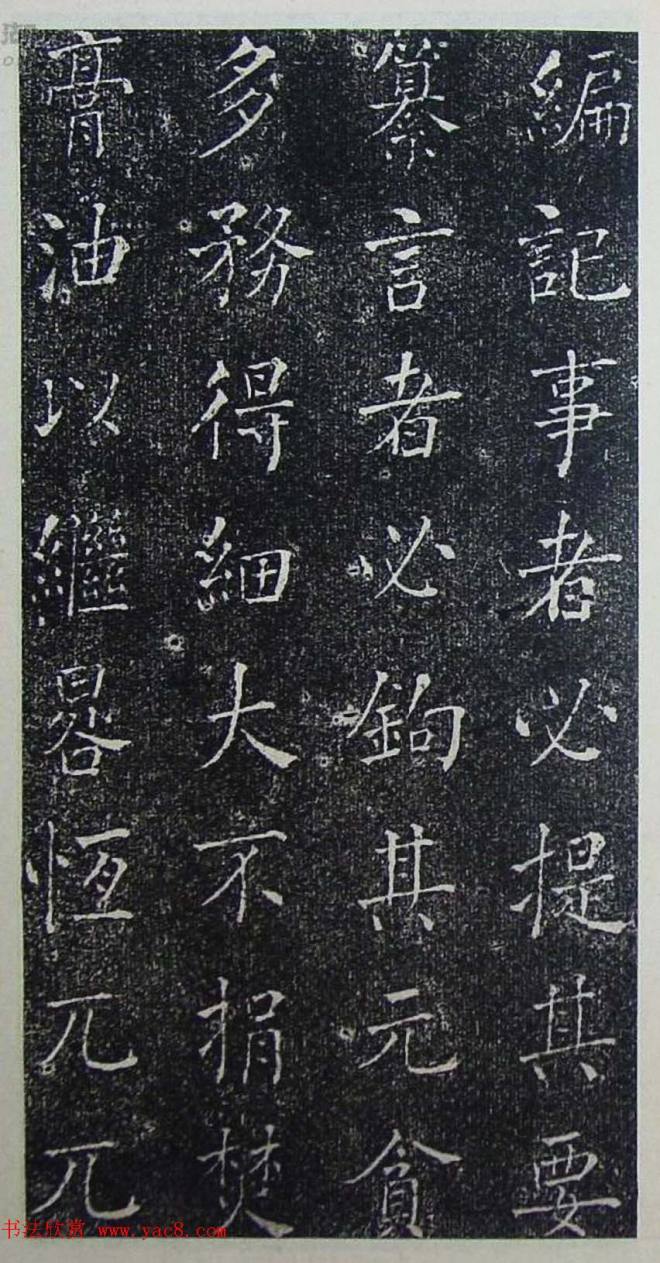 編記事者必提其要
纂言者必鉤其元貪
多務得細大不捐焚
膏油以繼晷恆兀兀
书法欣赏 www.yac8.com